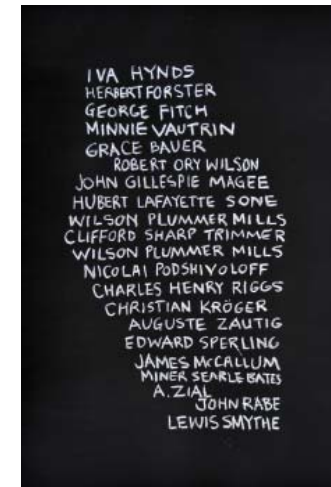 IVA HYNDS
HERBERT FORSTER
GEORGE FITCH
MINNIE VAUTRIN
GRACE BAUER
ROBERT ORY WILSON
JOHN GILLESPIE MAGEE
HUBERT LAFAYETTE SONE
WILSON PLUMMER MILLS
CLIFFORD SHARP TRIMMER
WILSON PLUMMER MILLS
NICOLAI PODSHIVOLOFF
CHARLES HENRY RIGGS
CHRISTIAN KRÖGER
AUGUSTE ZAUTIG
EDWARD SPERLING
JAMES McCALLUM
MINER SEARLE BATES
A. ZIAL
JOHN RABE
LEWIS SMYTHE